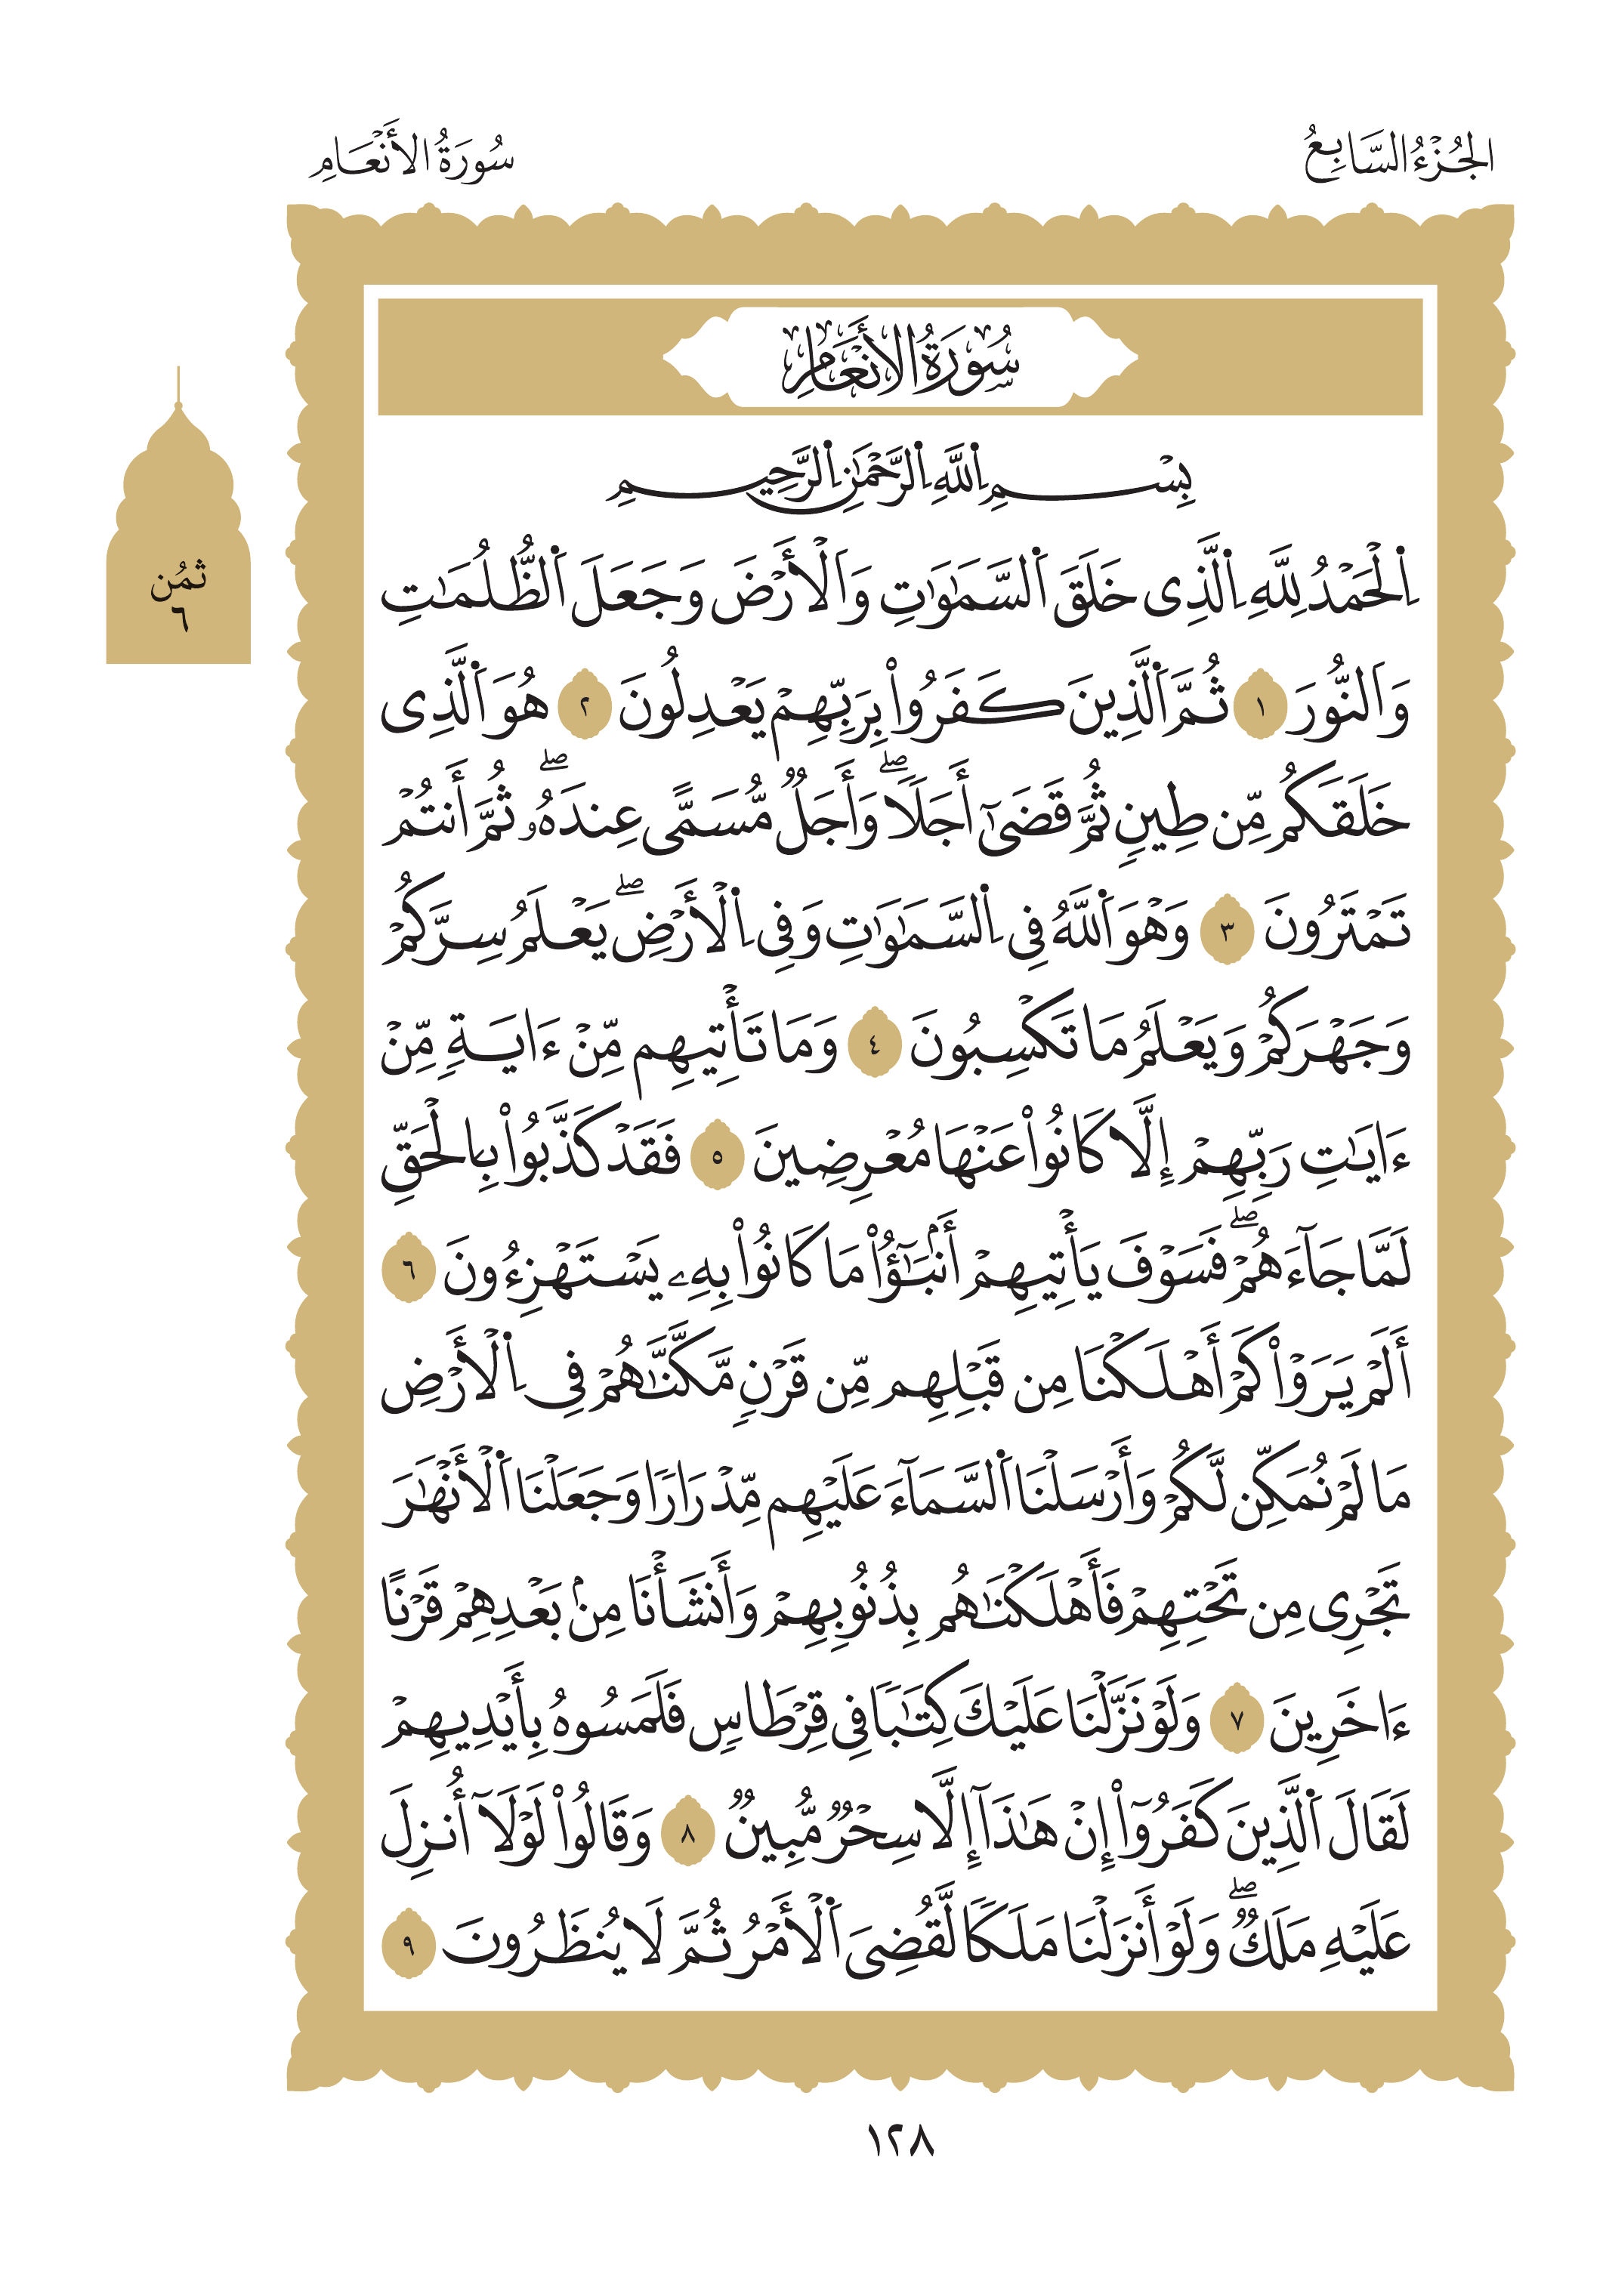 الجُزْءُ السَّابِعُ
سُورَةُ الأَنْعَامِ
سُورَةُ الأَنْعَامِ
بِسْمِ اِ۬للَّهِ اِ۬لرَّحْمَٰنِ اِ۬لرَّحِيمِ
اِ۬لْحَمْدُ لِلَّهِ اِ۬لَّذِى خَلَقَ اَ۬لسَّمَٰوَٰتِ وَالْأَرْضَ وَجَعَلَ اَ۬لظُّلُمَٰتِ
وَالنُّورَ ١ ثُمَّ اَ۬لَّذِينَ كَفَرُواْ بِرَبِّهِمْ يَعْدِلُونَ ٢ هُوَ اَ۬لَّذِى
ثُمُن
٦
خَلَقَكُم مِّن طِينٍ ثُمَّ قَضَىٰٓ أَجَلًاۖ وَأَجَلٌ مُّسَمًّى عِندَهُۥۖ ثُمَّ أَنتُمْ
تَمْتَرُونَ ٣ وَهْوَ اَ۬للَّهُ فِى اِ۬لسَّمَٰوَٰتِ وَفِى اِ۬لْأَرْضِۖ يَعْلَمُ سِرَّكُمْ
وَجَهْرَكُمْ وَيَعْلَمُ مَا تَكْسِبُونَ ٤ وَمَا تَأْتِيهِم مِّنْ ءَايَةٍ مِّنْ
ءَايَٰتِ رَبِّهِمْ إِلَّا كَانُواْ عَنْهَا مُعْرِضِينَ ٥ فَقَدْ كَذَّبُواْ بِالْحَقِّ
لَمَّا جَآءَهُمْۖ فَسَوْفَ يَأْتِيهِمْ أَنۢبَٰٓؤُاْ مَا كَانُواْ بِهِۦ يَسْتَهْزِءُونَ ٦
أَلَمْ يَرَوْاْ كَمْ أَهْلَكْنَا مِن قَبْلِهِم مِّن قَرْنٍ مَّكَّنَّٰهُمْ فِى اِ۬لْأَرْضِ
مَا لَمْ نُمَكِّن لَّكُمْ وَأَرْسَلْنَا اَ۬لسَّمَآءَ عَلَيْهِم مِّدْرَارًا وَجَعَلْنَا اَ۬لْأَنْهَٰرَ
تَجْرِى مِن تَحْتِهِمْ فَأَهْلَكْنَٰهُم بِذُنُوبِهِمْ وَأَنشَأْنَا مِنۢ بَعْدِهِمْ قَرْنًا
ءَاخَرِينَ ٧ وَلَوْ نَزَّلْنَا عَلَيْكَ كِتَٰبًا فِى قِرْطَاسٍ فَلَمَسُوهُ بِأَيْدِيهِمْ
لَقَالَ اَ۬لَّذِينَ كَفَرُوٓاْ إِنْ هَٰذَآ إِلَّا سِحْرٌ مُّبِينٌ ٨ وَقَالُواْ لَوْلَآ أُنزِلَ
عَلَيْهِ مَلَكٌۖ وَلَوْ أَنزَلْنَا مَلَكًا لَّقُضِىَ اَ۬لْأَمْرُ ثُمَّ لَا يُنظَرُونَ ٩
١٢٨